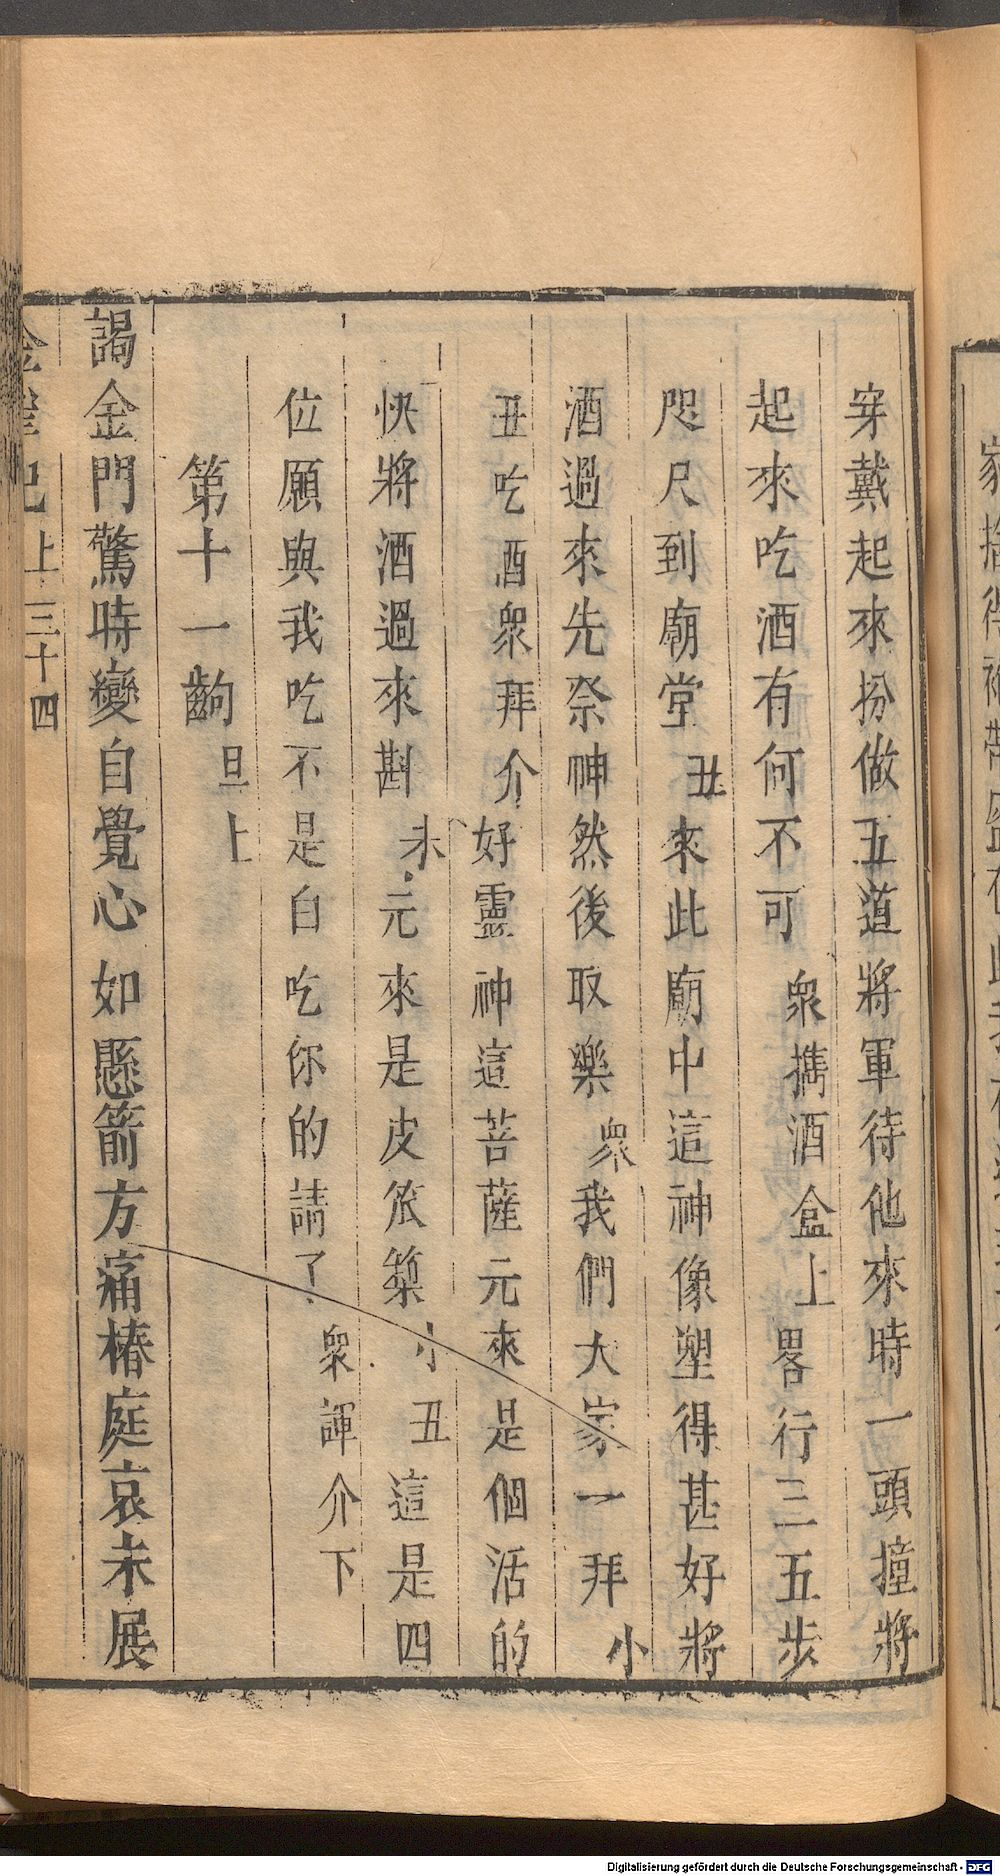 穿戴起來扮做五道將軍待他來時一頭撞將
起來吃酒有何不可衆攜酒盒上畧行三五步
咫尺到廟堂丑來此廟中這神像塑得甚好將
酒過來先祭神然後取樂衆我們大家一拜小
丑吃酒衆拜介好靈神這菩薩元來是個活的
快將酒過來斟末元來是皮笊篱小丑這是四
位願與我吃不是白吃你的請了衆諢介下
第十一齣旦上
謁金門驚時變自覺心如懸箭方痛椿庭哀未展
金雀記上三十四
Digitalisierung gefördert durch die Deutsche Forschungsgemeinschaft - DFG